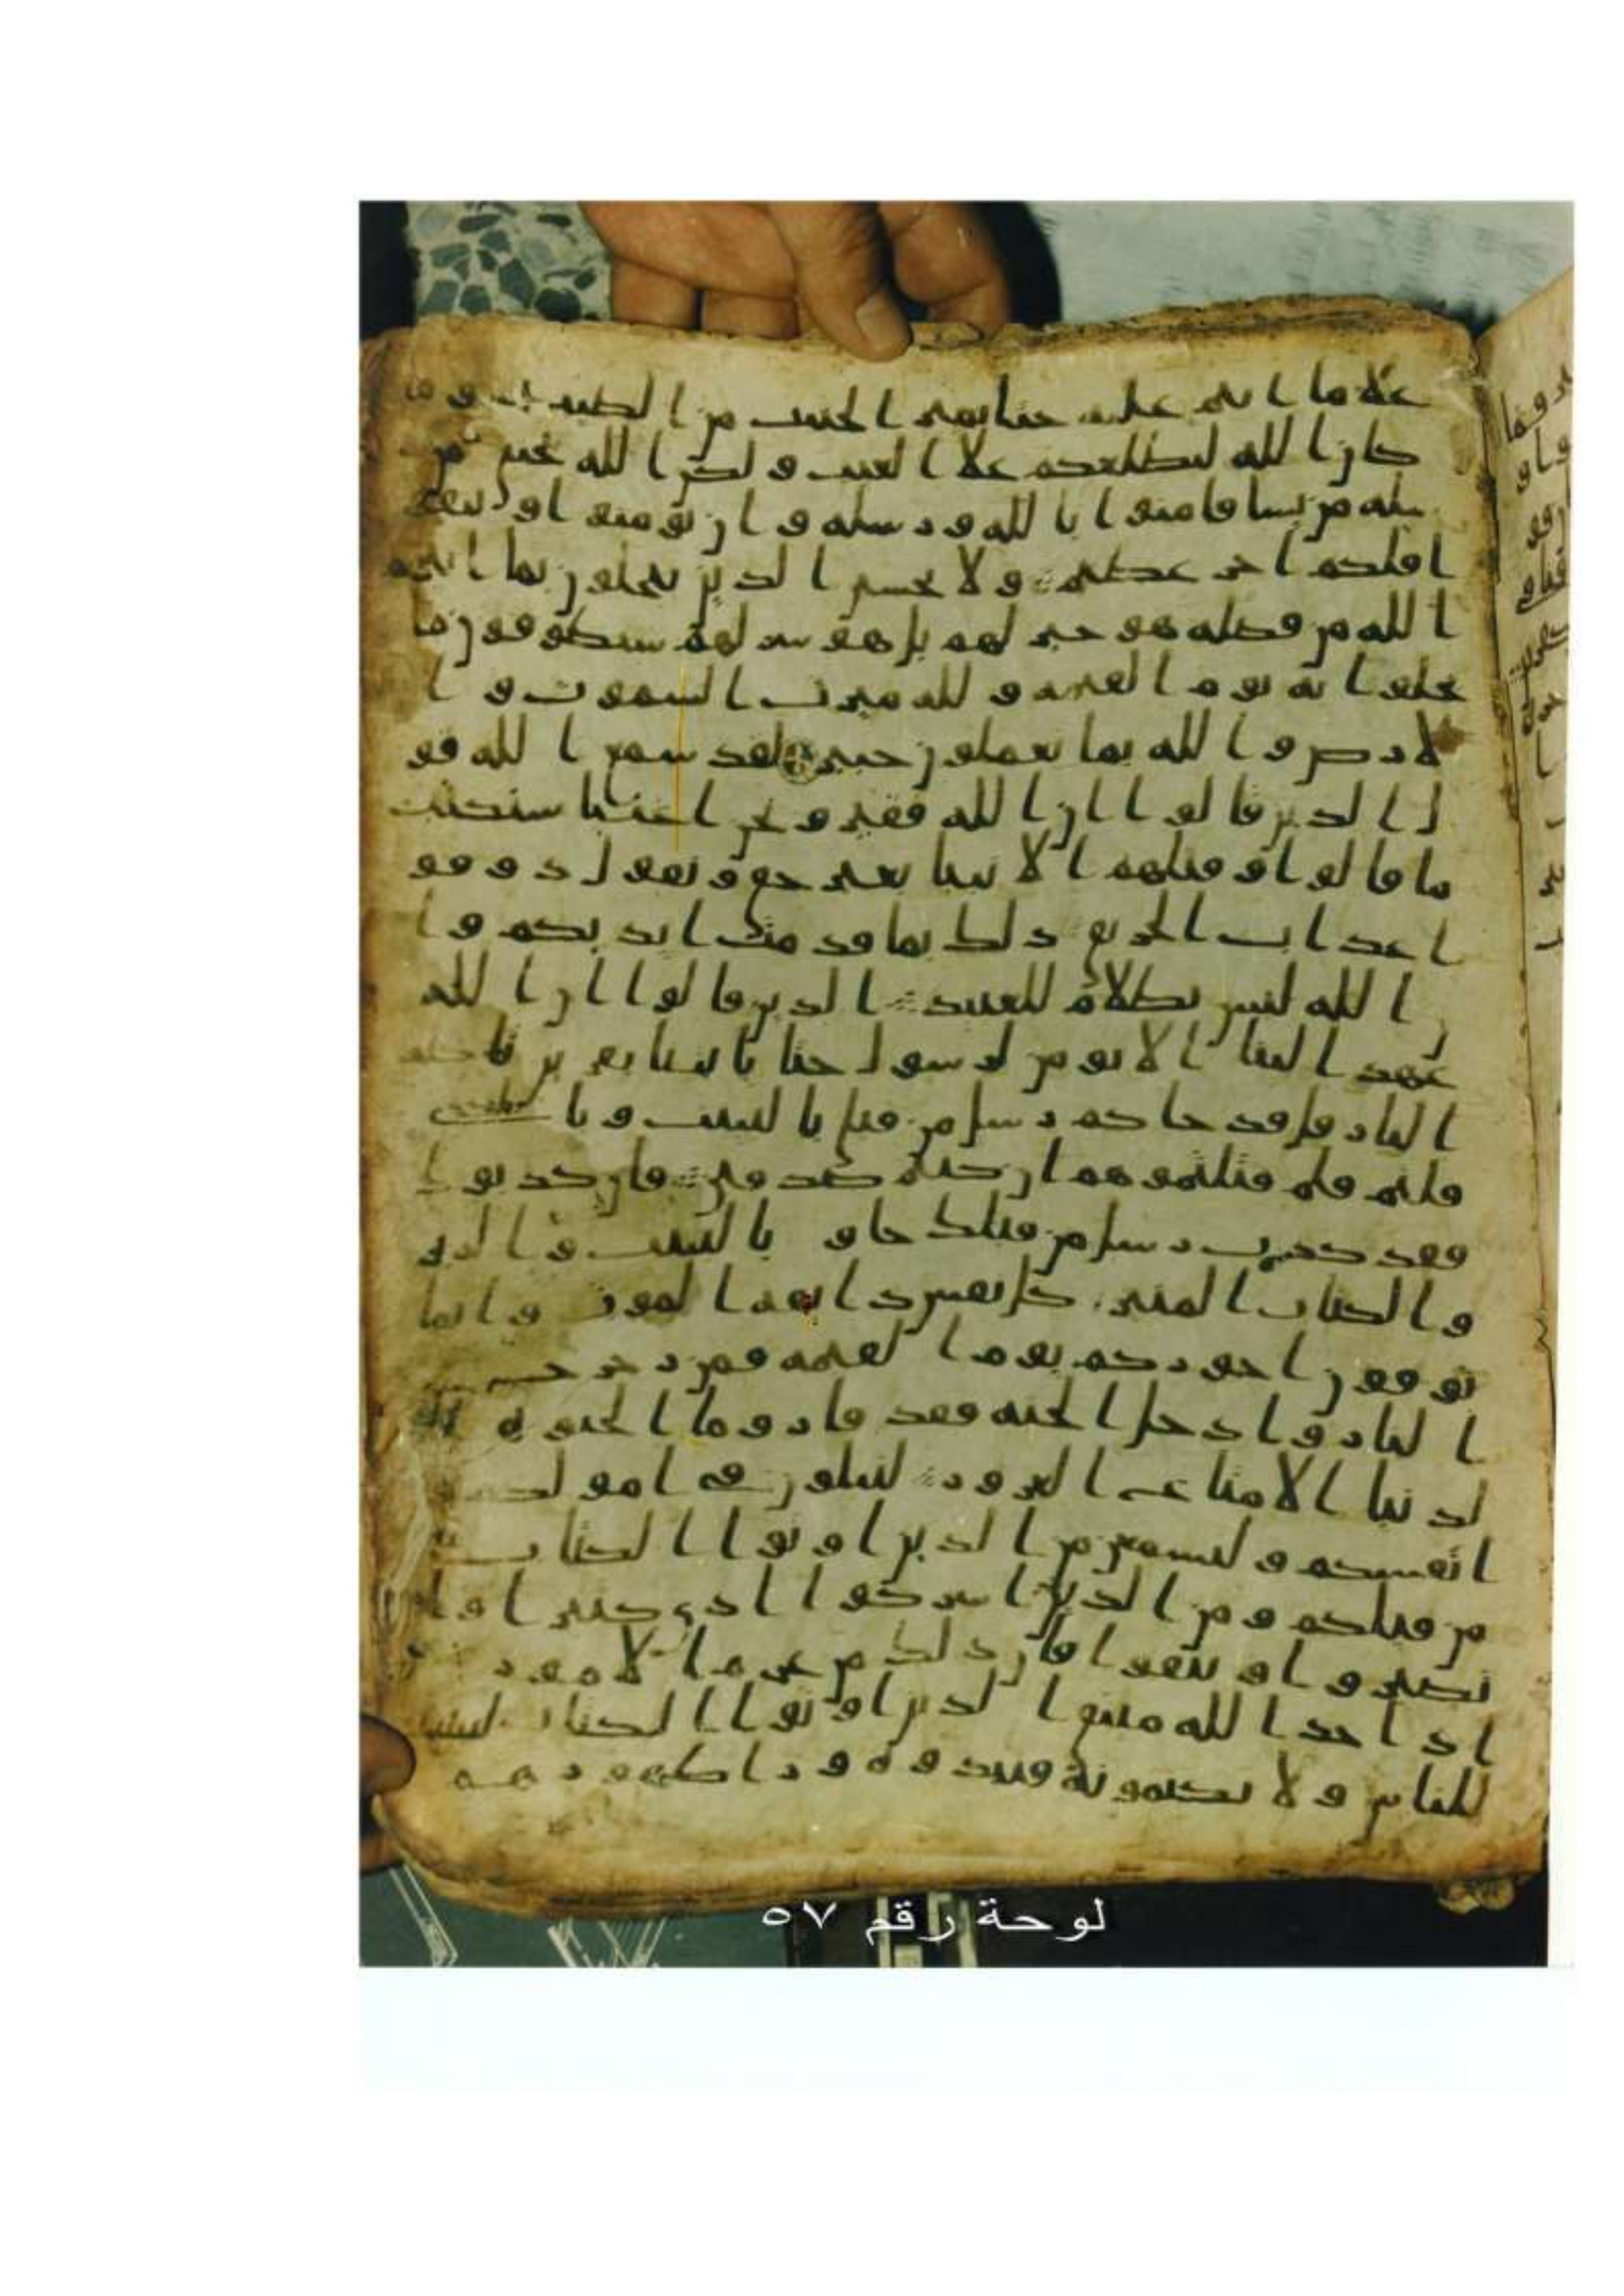 علا ما انتم عليه حتا يميز الخبيث من الطيب وما
كان الله ليطلعكم علا الغيب ولكن الله يجتبي من
رسله من يشا فامنوا بالله ورسله وان تومنوا وتتقو
ا فلكم اجر عظيم ولا يحسبن الذين يبخلون بما اتيهم
الله من فضله هو خير لهم بل هو شر لهم سيطوقون ما
بخلوا به يوم القيمه ولله ميرث السموت وا
لارض والله بما تعملون خبير لقد سمع الله قو
ل الذين قالوا ان الله فقير ونحن اغنيا سنكتب
ما قالوا وقتلهم الانبيا بغير حق ونقول ذوقو
ا عذاب الحريق ذلك بما قدمت ايديكم وا
ن الله ليس بظلام للعبيد الذين قالوا ان الله
عهد الينا الا نومن لرسول حتا ياتينا بقربن تاكله
النار قل قد جاكم رسل من قبلي بالبينت وبا
قلتم فلم قتلتموهم ان كنتم صدقين فان كذبوك
فقد كذب رسل من قبلك جاو بالبينت والزبر
والكتاب المنير كل نفس ذايقه الموت وانما
توفون اجوركم يوم القيمه فمن زحزح عن
النار وادخل الجنه فقد فاز وما الحيوه ا
لدنيا الا متاع الغرور لتبلون في امولكم
انفسكم ولتسمعن من الذين اوتوا الكتاب
من قبلكم ومن الذين اشركوا اذى كثيرا وان
تصبروا وتتقوا فان ذلك من عزم الامور
اذ اخذ الله ميثق الذين اوتوا الكتاب لتبيننه
للناس ولا تكتمونه فنبذوه ورا ظهورهم
لوحة رقم ٥٧